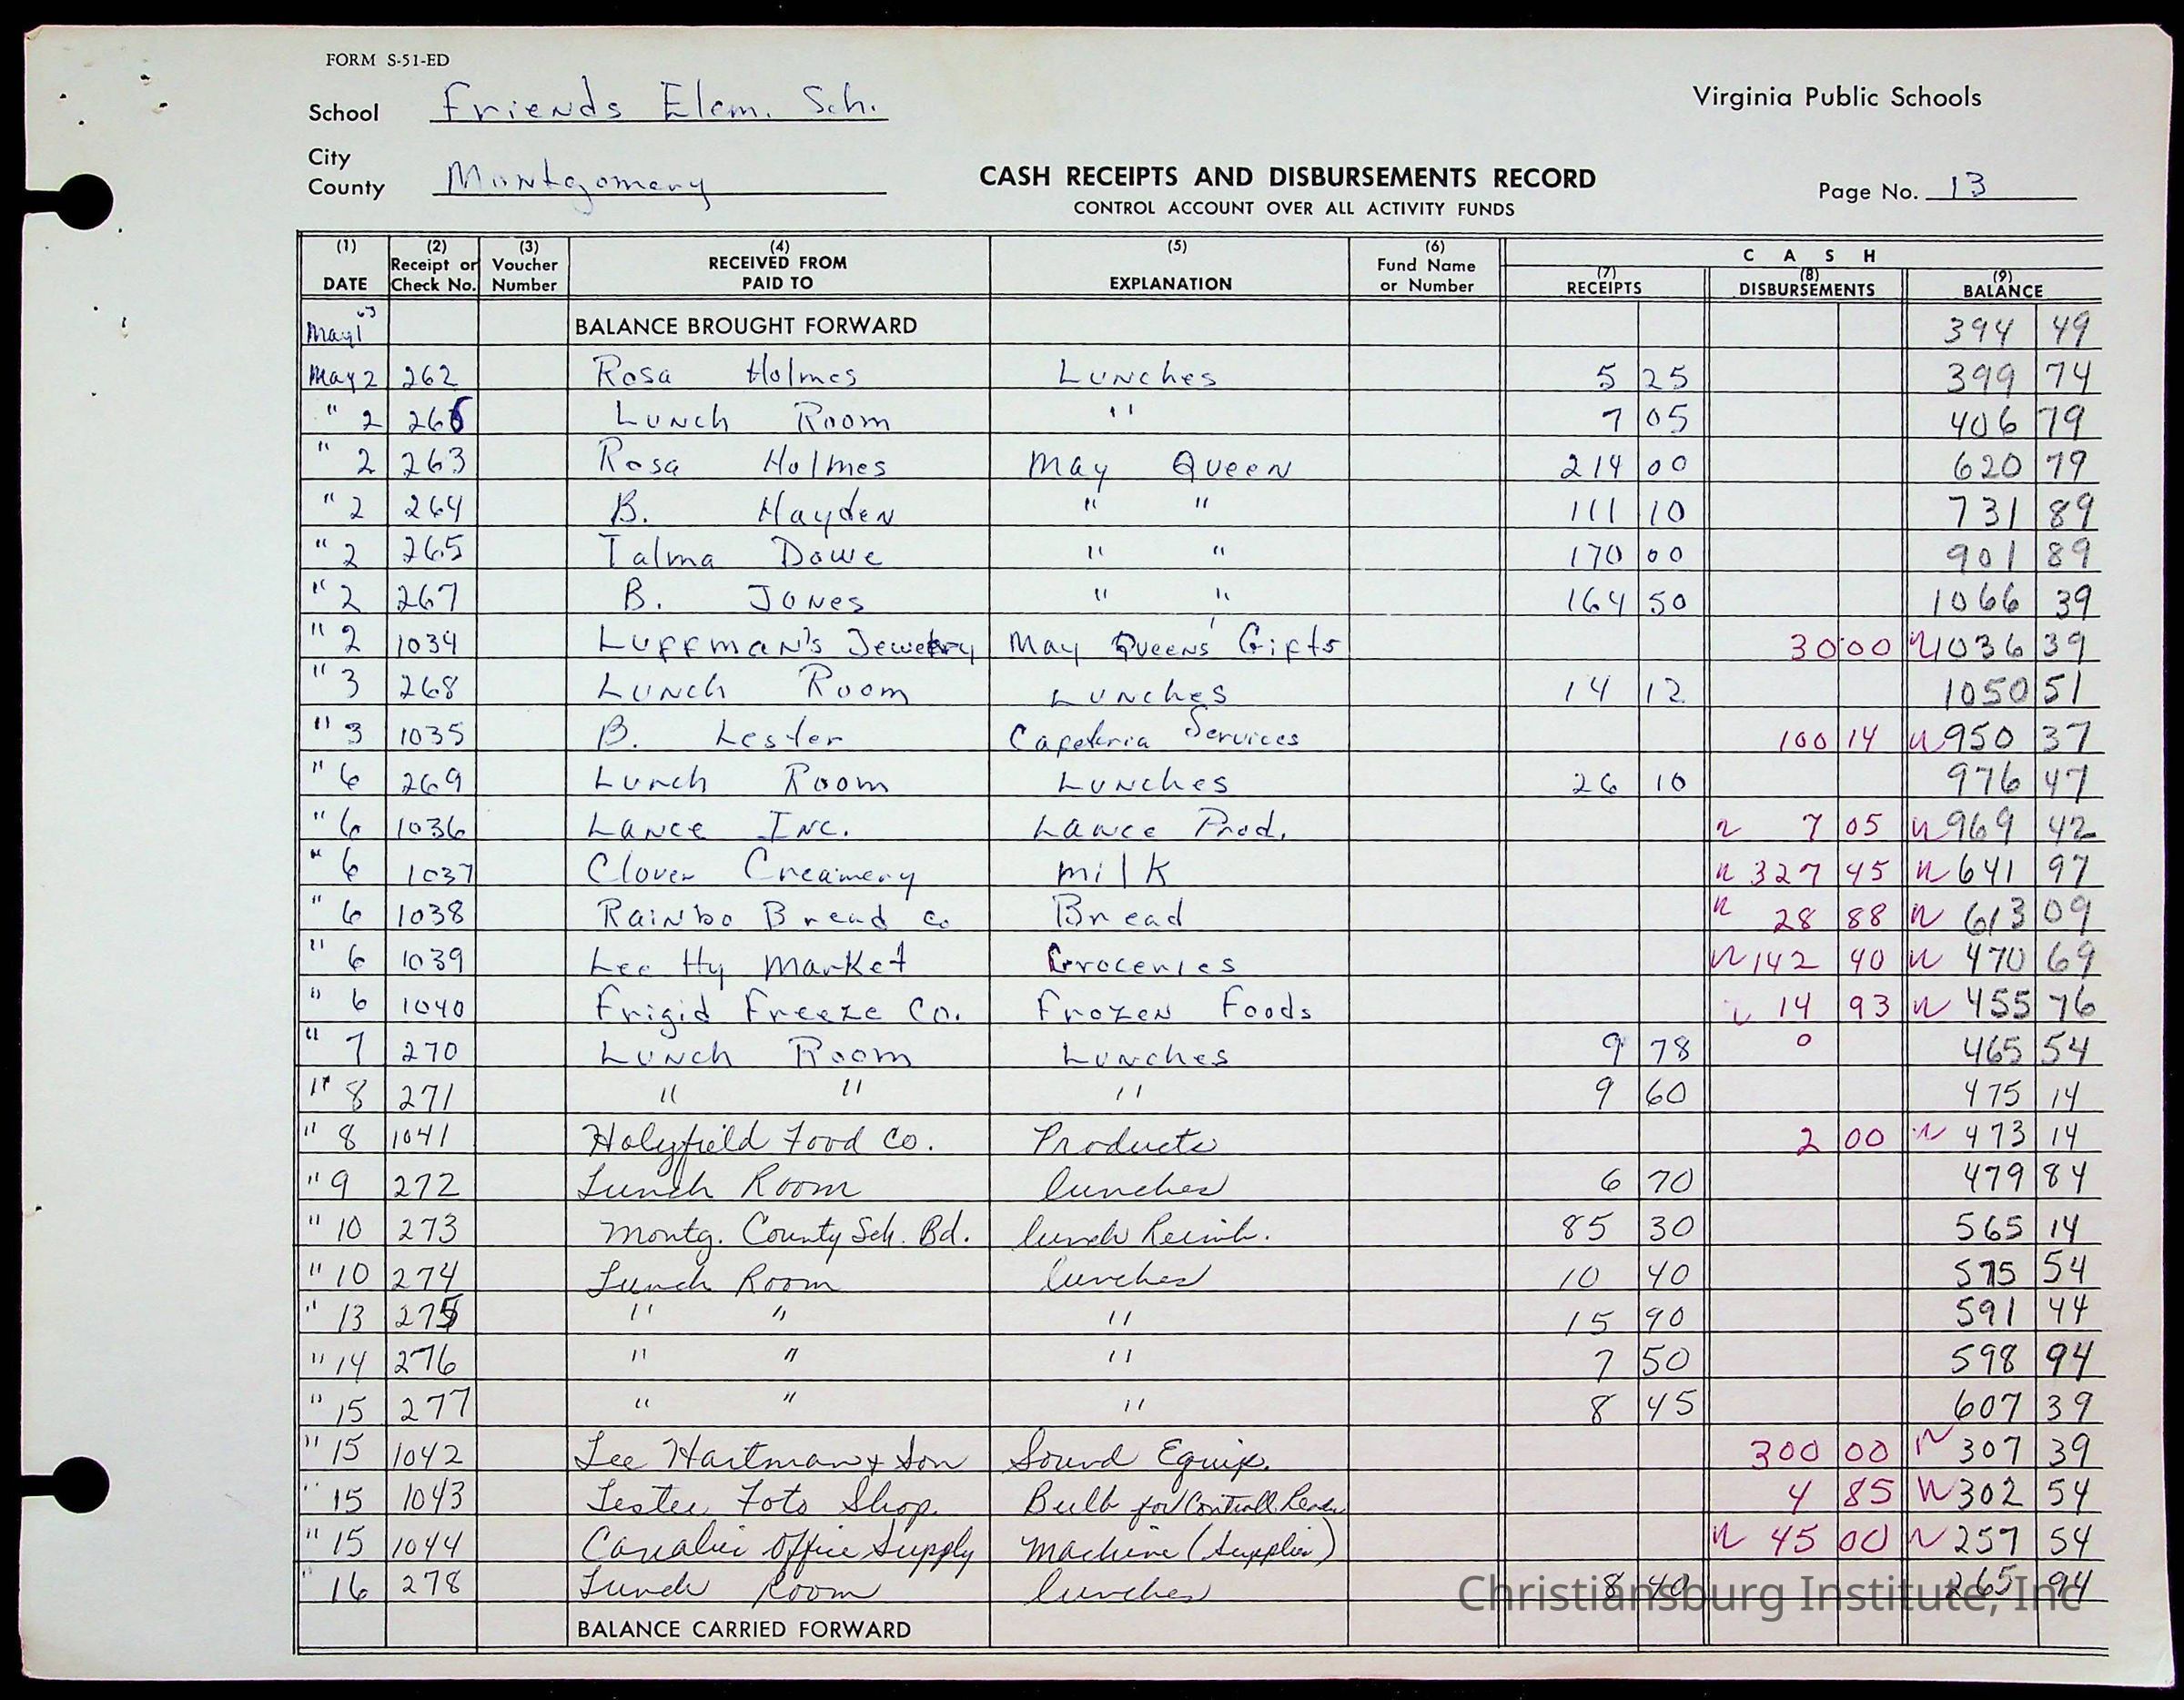 FORM S-51-ED
School Friends Elem. Sch.
Virginia Public Schools
City
County Montgomery
CASH RECEIPTS AND DISBURSEMENTS RECORD
Page No. 13
CONTROL ACCOUNT OVER ALL ACTIVITY FUNDS
(1) DATE (2) Receipt or Check No. (3) Voucher Number (4) RECEIVED FROM PAID TO (5) EXPLANATION (6) Fund Name or Number CASH (7) RECEIPTS (8) DISBURSEMENTS (9) BALANCE
May 1 63 BALANCE BROUGHT FORWARD 394 49
May 2 262 Rosa Holmes Lunches 5 25 399 74
" 2 266 Lunch Room " 7 05 406 79
" 2 263 Rosa Holmes May Queen 214 00 620 79
" 2 264 B. Hayden " " 111 10 731 89
" 2 265 Talma Dowe " " 170 00 901 89
" 2 267 B. Jones " " 164 50 1066 39
" 2 1034 Luffman's Jewelry May Queens' Gifts 30 00 1036 39
" 3 268 Lunch Room Lunches 14 12 1050 51
" 3 1035 B. Lester Cafeteria Services 100 14 950 37
" 6 269 Lunch Room Lunches 26 10 976 47
" 6 1036 Lance Inc. Lance Prod. 7 05 969 42
" 6 1037 Clover Creamery milk 327 45 641 97
" 6 1038 Rainbo Bread Co Bread 28 88 613 09
" 6 1039 Lee Hy Market Groceries 142 40 470 69
" 6 1040 Frigid Freeze Co. Frozen Foods 14 93 455 76
" 7 270 Lunch Room Lunches 9 78 465 54
" 8 271 " " " 9 60 475 14
" 8 1041 Holyfield Food Co. Products 2 00 473 14
" 9 272 Lunch Room lunches 6 70 479 84
" 10 273 Montg. County Sch. Bd. lunch Reimb. 85 30 565 14
" 10 274 Lunch Room lunches 10 40 575 54
" 13 275 " " " 15 90 591 44
" 14 276 " " " 7 50 598 94
" 15 277 " " " 8 45 607 39
" 15 1042 Lee Hartman & Son Sound Equip. 300 00 307 39
" 15 1043 Lester Foto Shop Bulb for 4 85 302 54
" 15 1044 Cavalier Office Supply Machine (Supplies) 45 00 257 54
" 16 278 Lunch Room lunches 8 40 265 94
BALANCE CARRIED FORWARD
Christiansburg Institute, Inc